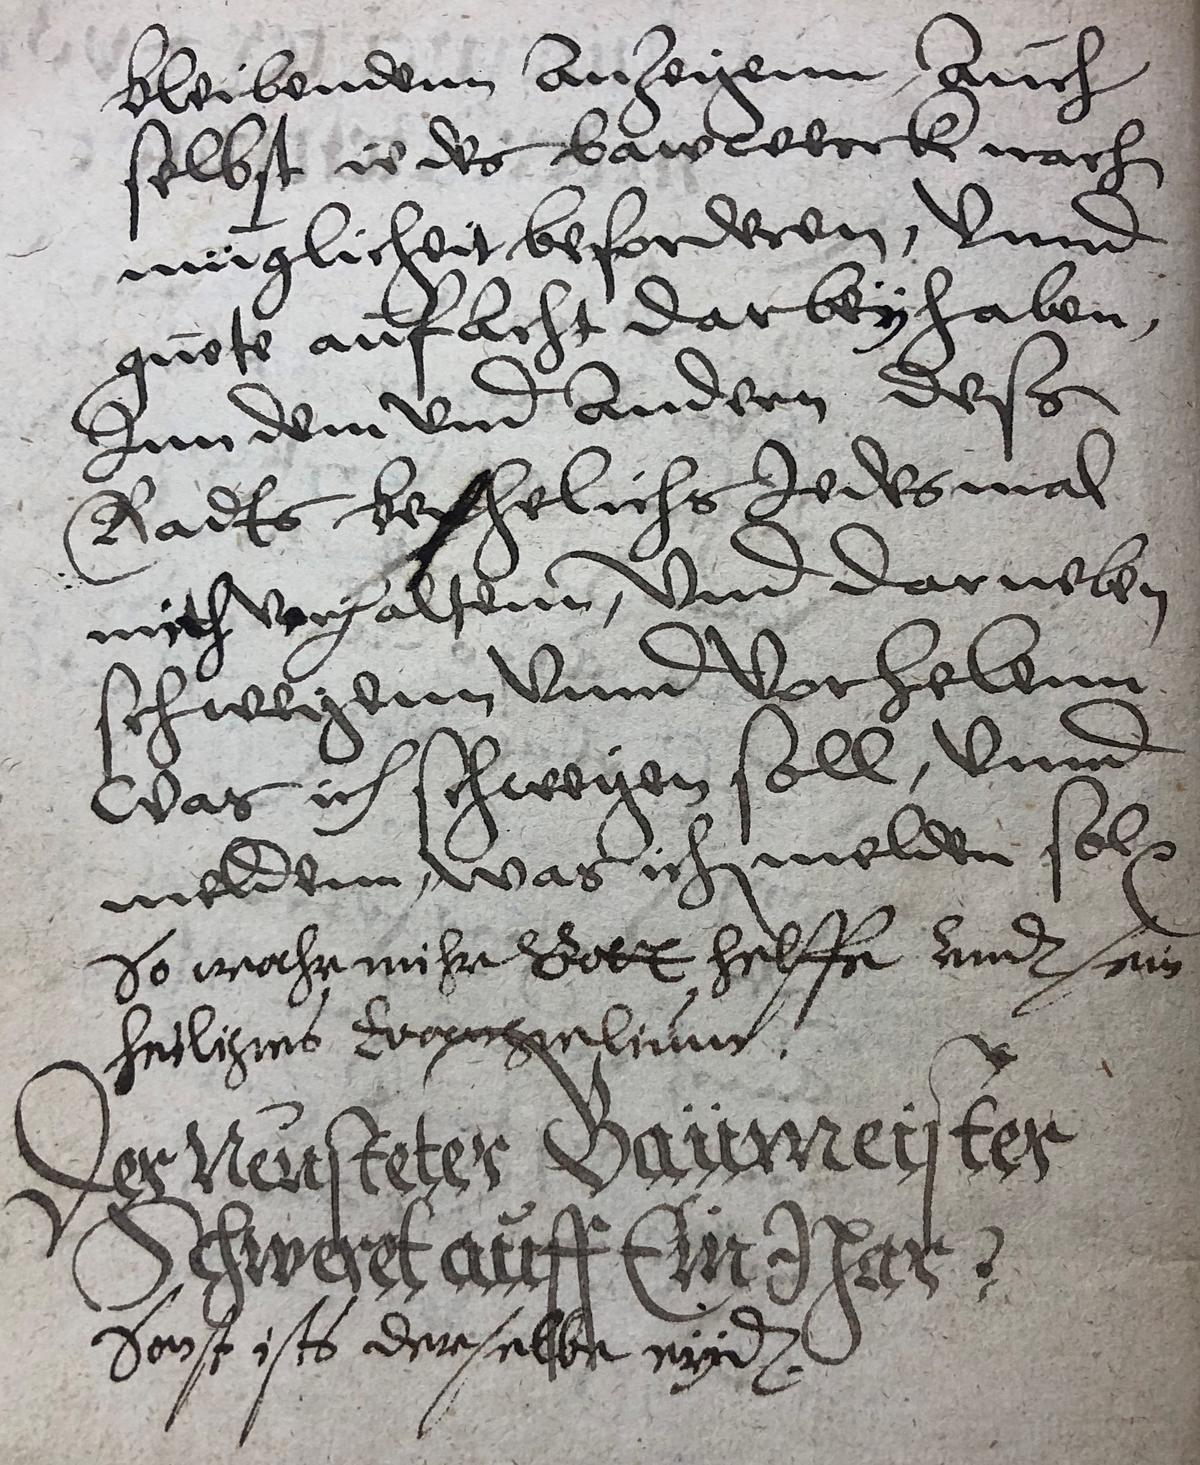 bleibendenn anzeigenn, auch
selbst iedes bawwerck nach
müglicheit beforderen, vnnd
guete aufacht darbeÿ haben,
Inn dem vnd andern dess
Radts beuhelichs Jedesmal
mich verhaltenn, vnd darneben
schweigenn vnnd vorhelenn
was ich schweigen soll, vnnd
meldenn, was ich melden sol
So wahr mihr Gott helffe vnd sein
heiliges Euangelium.
Der Neusteter Baümeister
Schweret auff Ein Jhar
Sonst ists derselbe eÿd.